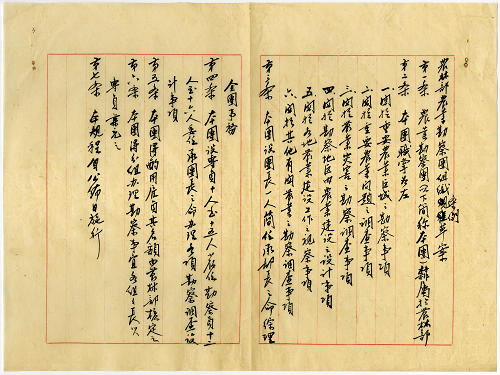 農林部農業勘察團組織規程草案
條例
第一条 農業勘察團(以下簡称本團)隸屬於農林部
第二条 本團職掌如左
一 關於重要農業區域之勘察事項
二 關於重要農業問題之調查事項
三 關於農業災害之勘察調查事項
四 關於勘察地區內農業建設之設計事項
五 關於各地農業建設工作之視察事項
六 關於其他有關農業之勘察調查事項
第三条 本團設團長一人簡任承部長之命綜理
全團事務
第四条 本團設專員十人至十五人薦任勘察員十二
人至十六人委任承團長之命辦理各項勘察調查設
計事項
第五条 本團得酌用雇員其名額由農林部核定之
第六条 本團得分組办理勘察事宜各組組長以
專員兼充之
第七条 本規程自公佈日施行